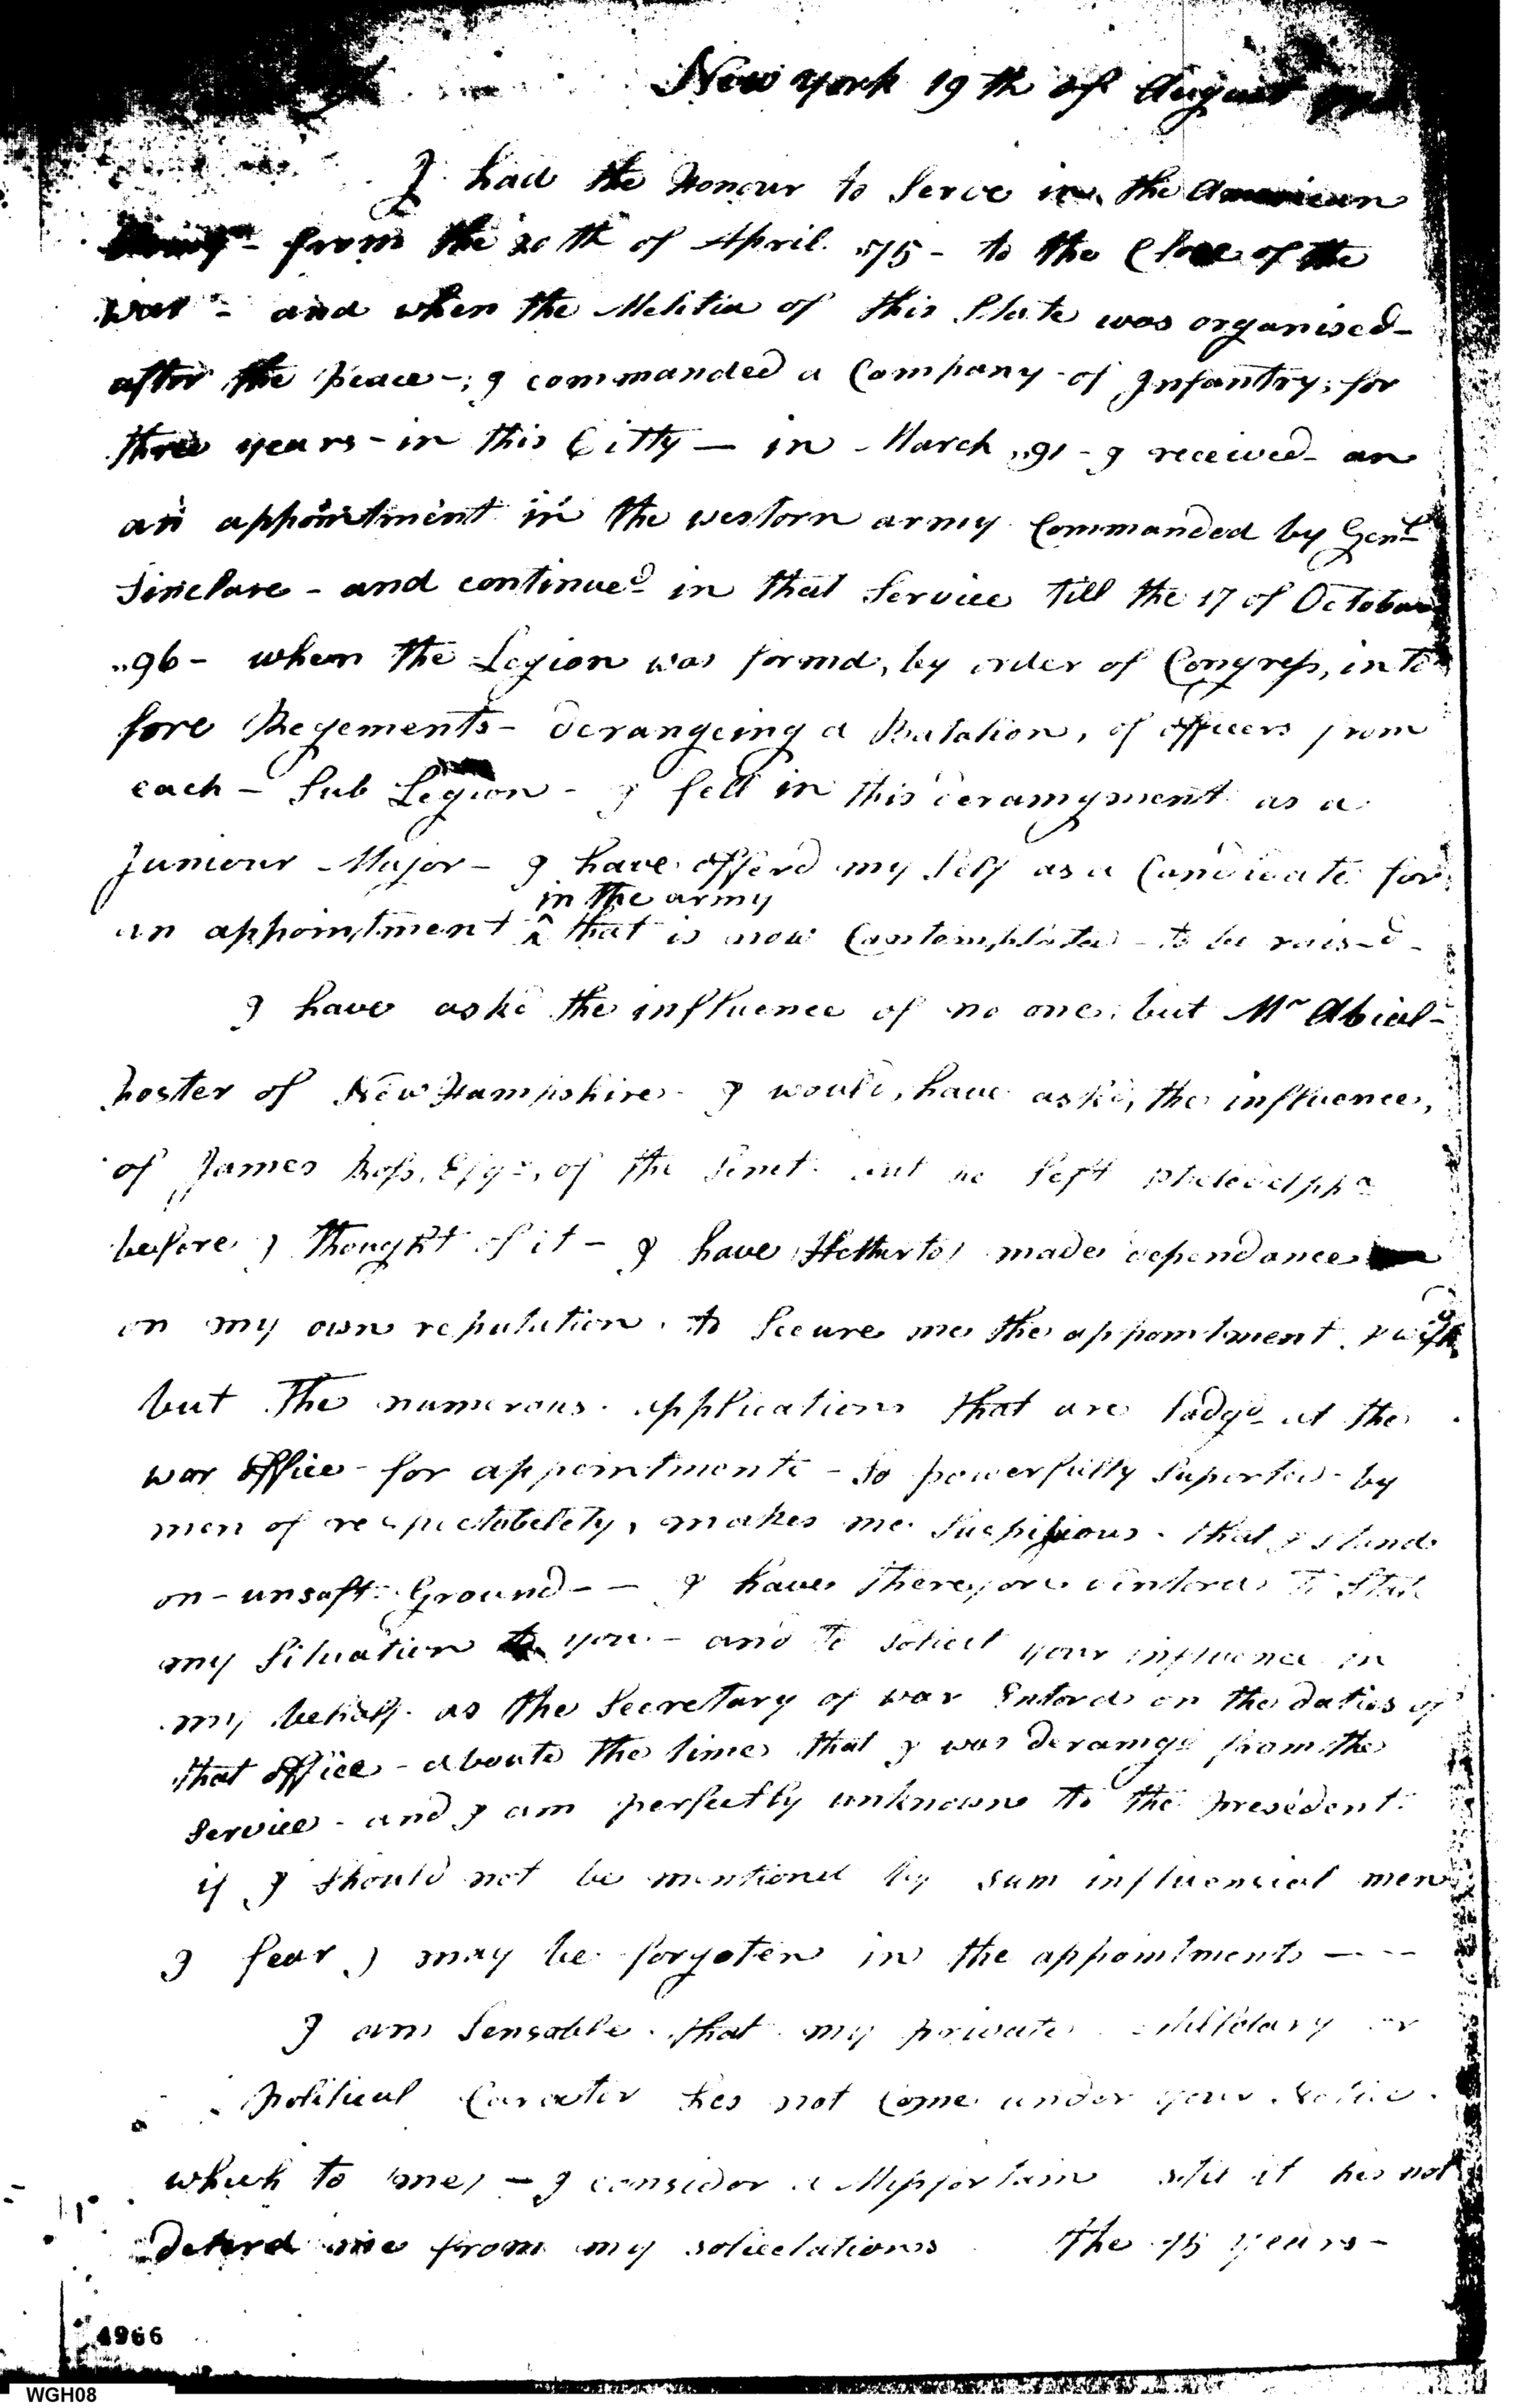 New York 19th of August
I had the Honour to Serve in the American
Army - from the 20th of April "75 - to the Close of the
War - and when the Melitia of this State was organised -
after the peace -; I commanded a Company of Infantry, for
three years - in this Citty — in March "91 - I received an
an appointment in the western army Commanded by Genl
Sinclare - and continued in that Service till the 17 of October
"96 - when the Legion was formd, by order of Congress, into
fore Regements - derangeing a Batalion, of officers from
each - Sub Legion - I fell in this derangment as a
Juniour Major - I have offerd my Self as a Candidate for
in the army
an appointment ^ that is now Contemplated - to be raised -
I have askd the influence of no one, but Mr Abial -
foster of New Hampshire - I would, have askd, the influence,
of James Ross, Esqr, of the Senet but he left Philedelppa
before I thought of it - I have Hetherto made dependance
on my own reputation to Secure me the appointment
but The numerous applications that are lodgd at the
war office - for appointments - So powerfully Suported - by
men of respectabelety, makes me Suspisious that I stand
on - unsaft Ground - - I have therefore ventored to State
my Situation to you - and to solicit your influence in
my behalf as the Secretary of war Entord on the duties of
that office - aboute the time that I was derangd from the
Service - and I am perfectly unknown to the president
if I should not be mentioned by sum influencial men
I fear I may be forgoten in the appointments — - -
I am Sensable that my private Millitary or
Political Caracter hes not Come under your Notice
which to me, - I consider a Missfortain still it hes not
deterd me from my soliecitations The 15 years -
4966
WGH08